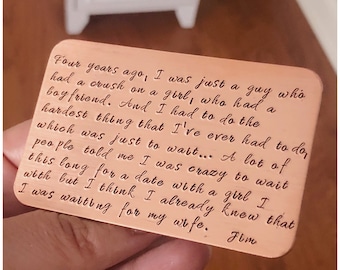 Four years ago, I was just a guy who
had a crush on a girl, who had a
boyfriend. And I had to do the
hardest thing that I've ever had to do,
which was just to wait... A lot of
people told me I was crazy to wait
this long for a date with a girl I
with but I think I already knew that
I was waiting for my wife. Jim